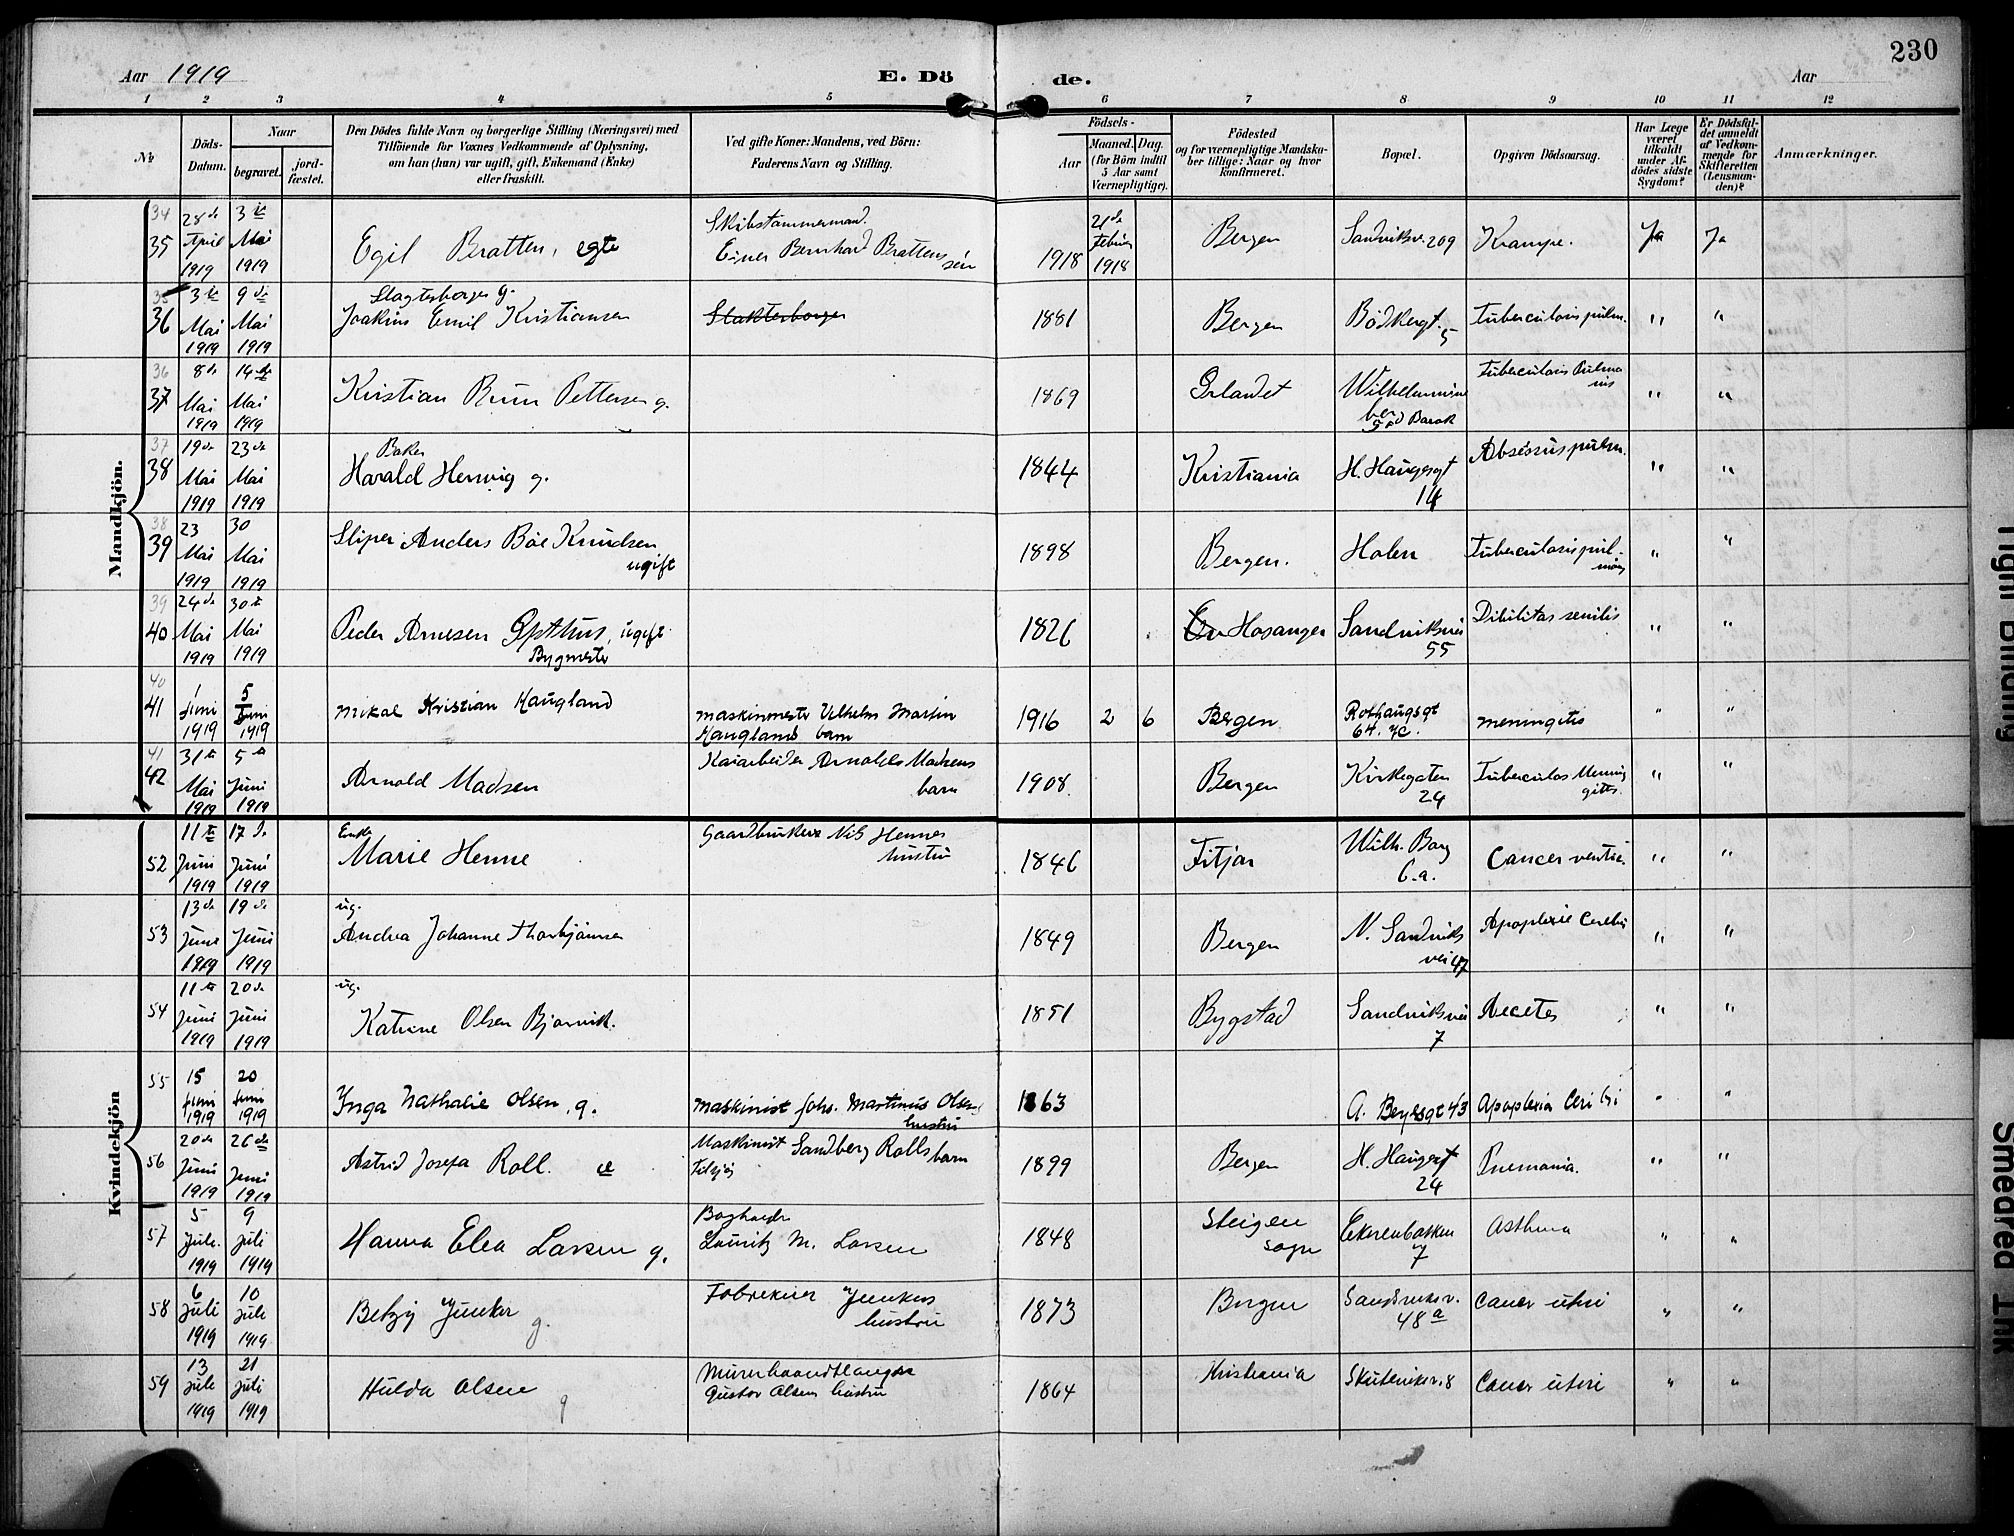 230
Aar 1919 E. Dö de. Aar
1 2 3 4 5 6 7 8 9 10 11 12
No
Döds-Datum.
Naar
begravet.
jordfæstet.
Den Dödes fulde Navn og borgerlige Stilling (Næringsvei) med
Tilföiende for Voxnes Vedkommende af Oplysning,
om han (hun) var ugift, gift, Enkemand (Enke)
eller fraskilt.
Ved gifte Koner: Mandens, ved Börn:
Faderens Navn og Stilling.
Födsels-
Aar
Maaned. Dag.
(for Börn indtil
5 Aar samt
Værnepligtige).
Födested
og for værnepligtige Mandskaber tillige: Naar og hvor
konfirmeret.
Bopæl.
Opgiven Dödsaarsag.
Har Læge
været
tilkaldt
under Afdödes sidste
Sygdom?
Er Dödsfaldet anmeldt
af Vedkommende for
Skifteretten
(Lensmanden)?
Anmærkninger.
Mandkjön.
34
35 28de April 1919 3die Mai 1919 Egil Bratten, egte Skibstømmermand. Einer Bernhard Brattens sön 1918 21de Februar 1918 Bergen Sandviksv. 209 Krampe. Ja Ja
35
36 3die Mai 1919 9de Mai 1919 Slagterborger g. Joakim Emil Kristiansen Slakterborger 1881 Bergen Bödkergt. 5 Tuberculosis pulm. " "
36
37 8de Mai 1919 14de Mai 1919 Kristian Pettersen g. 1869 Wilhelmine Barak Tuberculosis Pulmonis " "
37
38 19de Mai 1919 23de Mai 1919 Baker Harald Herwig g. 1844 Kristiania H. Haugesgt 14 Absessus pulm. " "
38
39 23 Mai 1919 30 Mai 1919 Sliper Anders Böe Knudsen ugift 1898 Bergen. Holen Tuberculosis pulmony " "
39
40 24de Mai 1919 30te Mai 1919 Peder Arnesen Opthus, ugift Bygmester 1826 Hosanger Sandviksvei 55 Dibilitas senilis " "
40
41 1 juni 1919 5 Juni 1919 Mikal Kristian Haugland maskinmester Vilhelm Martin Hauglands barn 1916 2 6 Bergen Rothaugsgt 64. meningitis " "
41
42 31te Mai 1919 5te Juni 1919 Arnold Madsen Kaiarbeider Arnolds Madsens barn 1908. Bergen Kirkegaten 24 Tuberculos Meningitis. " "
Kvindekjön
52 11te Juni 1919 17de Juni 1919 Enke Marie Henne Gaardbruker Nils Hennes hustru 1846 Fitjar Wilh. Barg 6.a. Cancer ventric. " "
53 13de June 1919 19de Juni 1919 ug. Andrea Johanne Thorbjörnsen 1849 Bergen N. Sandviksvei 47 Apoplexie Cerebri " "
54 11te Juni 1919 20de Juni 1919 ug. Katrine Olsen Bjørvik. 1851 Bygstad Sandviksvei 7 Acetes " "
55 15 juni 1919 20 juni 1919 Inga Nathalie Olsen, g. maskinist Johs. Martinus Olsens hustru 1863 A. Beyersgt 43 Apoplexia Cerebri " "
56 20de Juni 1919 26de Juni 1919 Astrid Josefa Roll. æ Maskinist Sandberg Rolls barn 1899 Bergen H. Haugesgt 24 Pnemonia. " "
57 5 Juli 1919 9 Juli 1919 Hanna Elea Larsen g. Boghandler Lauritz M. Larsen 1848 Steigen sogn Ekrenbakken 7 Asthma " "
58 6 Juli 1919 10 Juli 1919 Betzy Juncker g. Fabrikeier Junckers hustru 1873 Bergen Sandviksv. 48a Cancer uteri " "
59 13 juli 1919 21 Juli 1919 Hulda Olsen g Murerhaandtlanger Gustav Olsens hustru 1864 Kristiania Skuteviksv. 8 Cancer uteri " "
Tight Binding
Smeared Ink